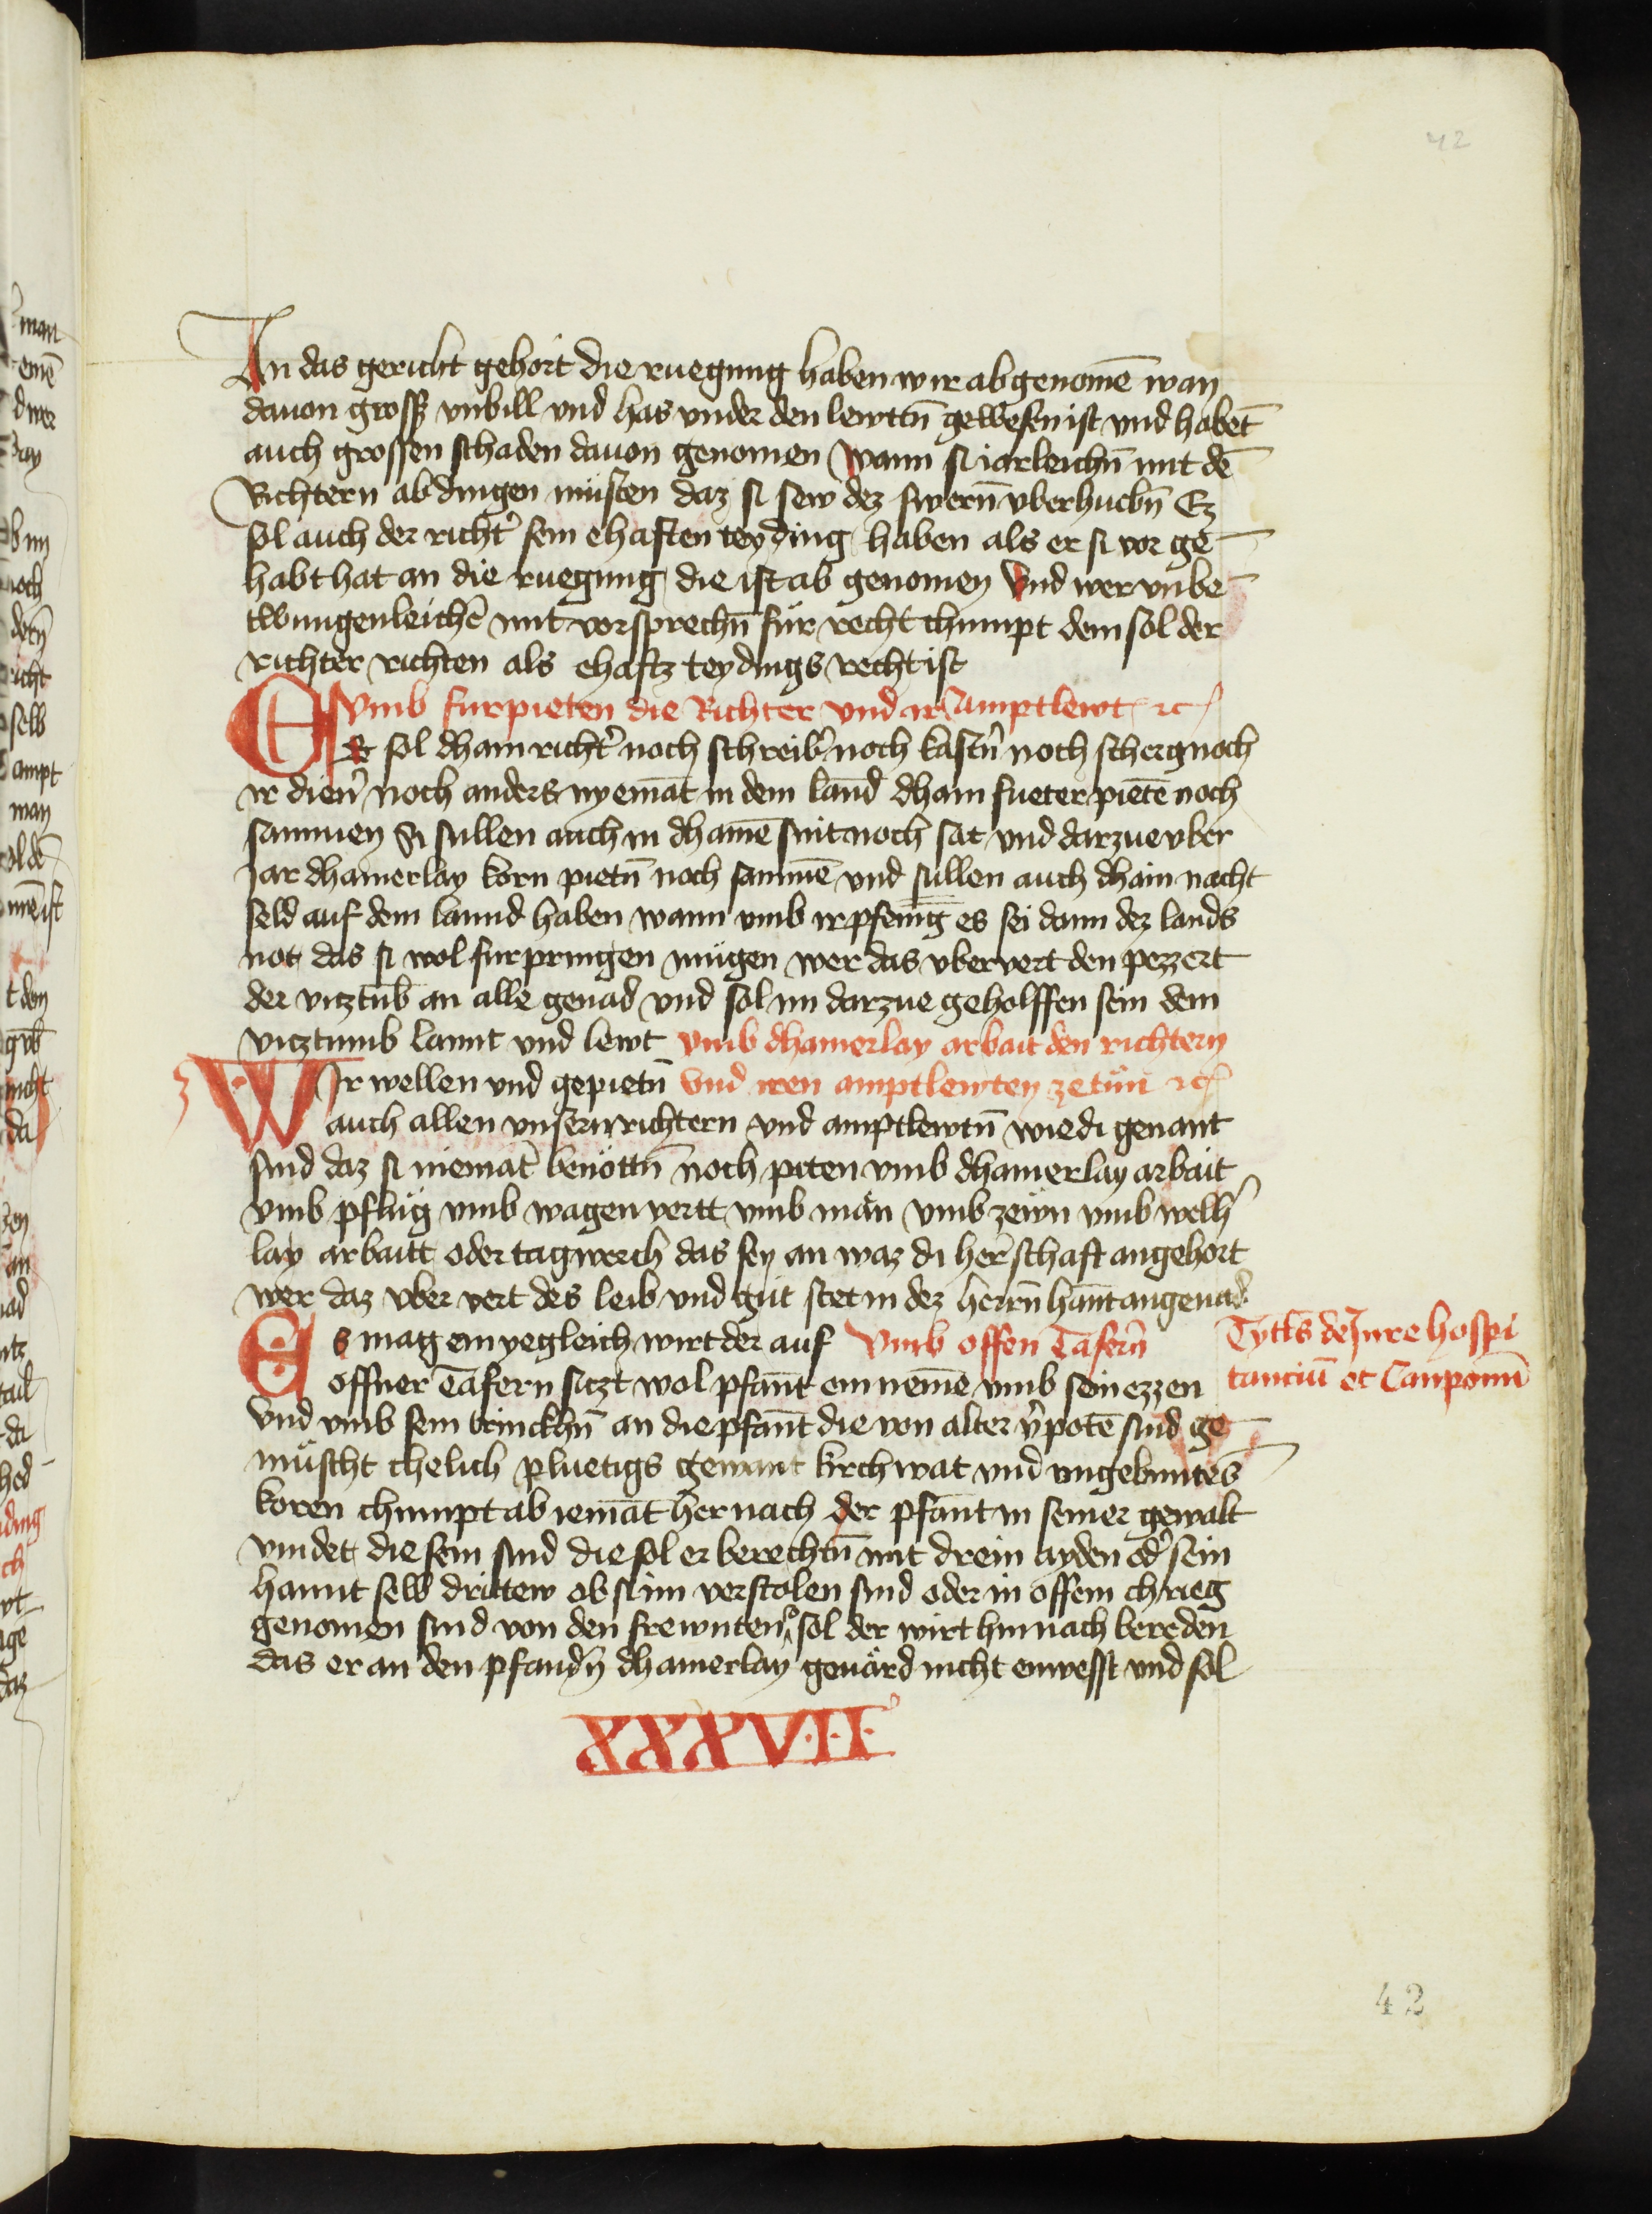 42
An das gericht gehort die ruegung haben wir abgenomē wan
dauon gross vnbill vnd has vnder den lewttn̄ gewesen ist vnd habet̄
auch grossen schaden dauon genomen Wann si iarleichn̄ mit dē
Richtern abdingen müsten daz si sew dez swern̄ vberhuebn̄ Ez
sol auch der richt͛ sein ehaften teyding haben als er si vor ge
habt hat an die ruegung die ist ab genomen Vnd wer vnbe
twungenleichē mit vorsprechn̄ für recht chumpt dem sol der
richter richten als ehaftz teydings recht ist
Vmb furpieten die Richter vnd ir Amptlewt ꝛc
Ez sol dhain richt͛ noch schreib͛ noch kastn͛ noch scherg noch
ir dien͛ noch anders nyemāt in dem land dhain fueter pietē noch
sammen Si sullen auch in dhainē snit noch sat vnd darzue vber
Jar dhainerlay korn pietn̄ noch sammē vnd sullen auch dhain nacht
seld auf dem lannd haben wann vmb ir pfenīg es sei dann dez lands
not das si wol furpringen mügen wer das vbervert den pezzert
der viztūb an alle genad vnd sol im darzue geholffen sein dem
viztumb lannt vnd lewt vmb dhainerlay arbait den richtern
Wir wellen vnd gepietn̄ vnd iren amptlewten zetün ꝛc
auch allen vnsern richtern vnd amptlewtn̄ wie di genant
sind daz si niemāt benöttn̄ noch piten vmb dhainerlay arbait
vmb pflüg vmb wagenvertt vmb män vmb zewn vmb welh͛
lay arbaitt oder tagwerch das sey an waz di her͛schaft angehort
wer daz vber vert des leib vnd gut stet in dez herrn̄ hant an genad
Es mag ein yegleich wirt der auf Vmb offen Tafern̄
Tytl͛s de Jure hospi
offner Tafern siczt wol pfant ein nemē vmb sein ezzen
tanciū et Cauponū
vnd vmb sein trinckhn̄ an die pfant die von alter v͛potē sind ge
müscht chelich pluetigs gewant kirchwat vnd vngebuntes
koren chumpt ab iemāt hernach der pfant in seiner gewalt
vindet die sein sind die sol er berechtn̄ mit drein ayden od͛ sein
hannt selb drittew ob si im verstolen sind oder in offem chrieg
genomen sind von den frewnten so sol der wirt hin nach bereden
das er an den pfandn̄ dhainerlay geuärd nicht enwesst vnd sol
XXXVII
42